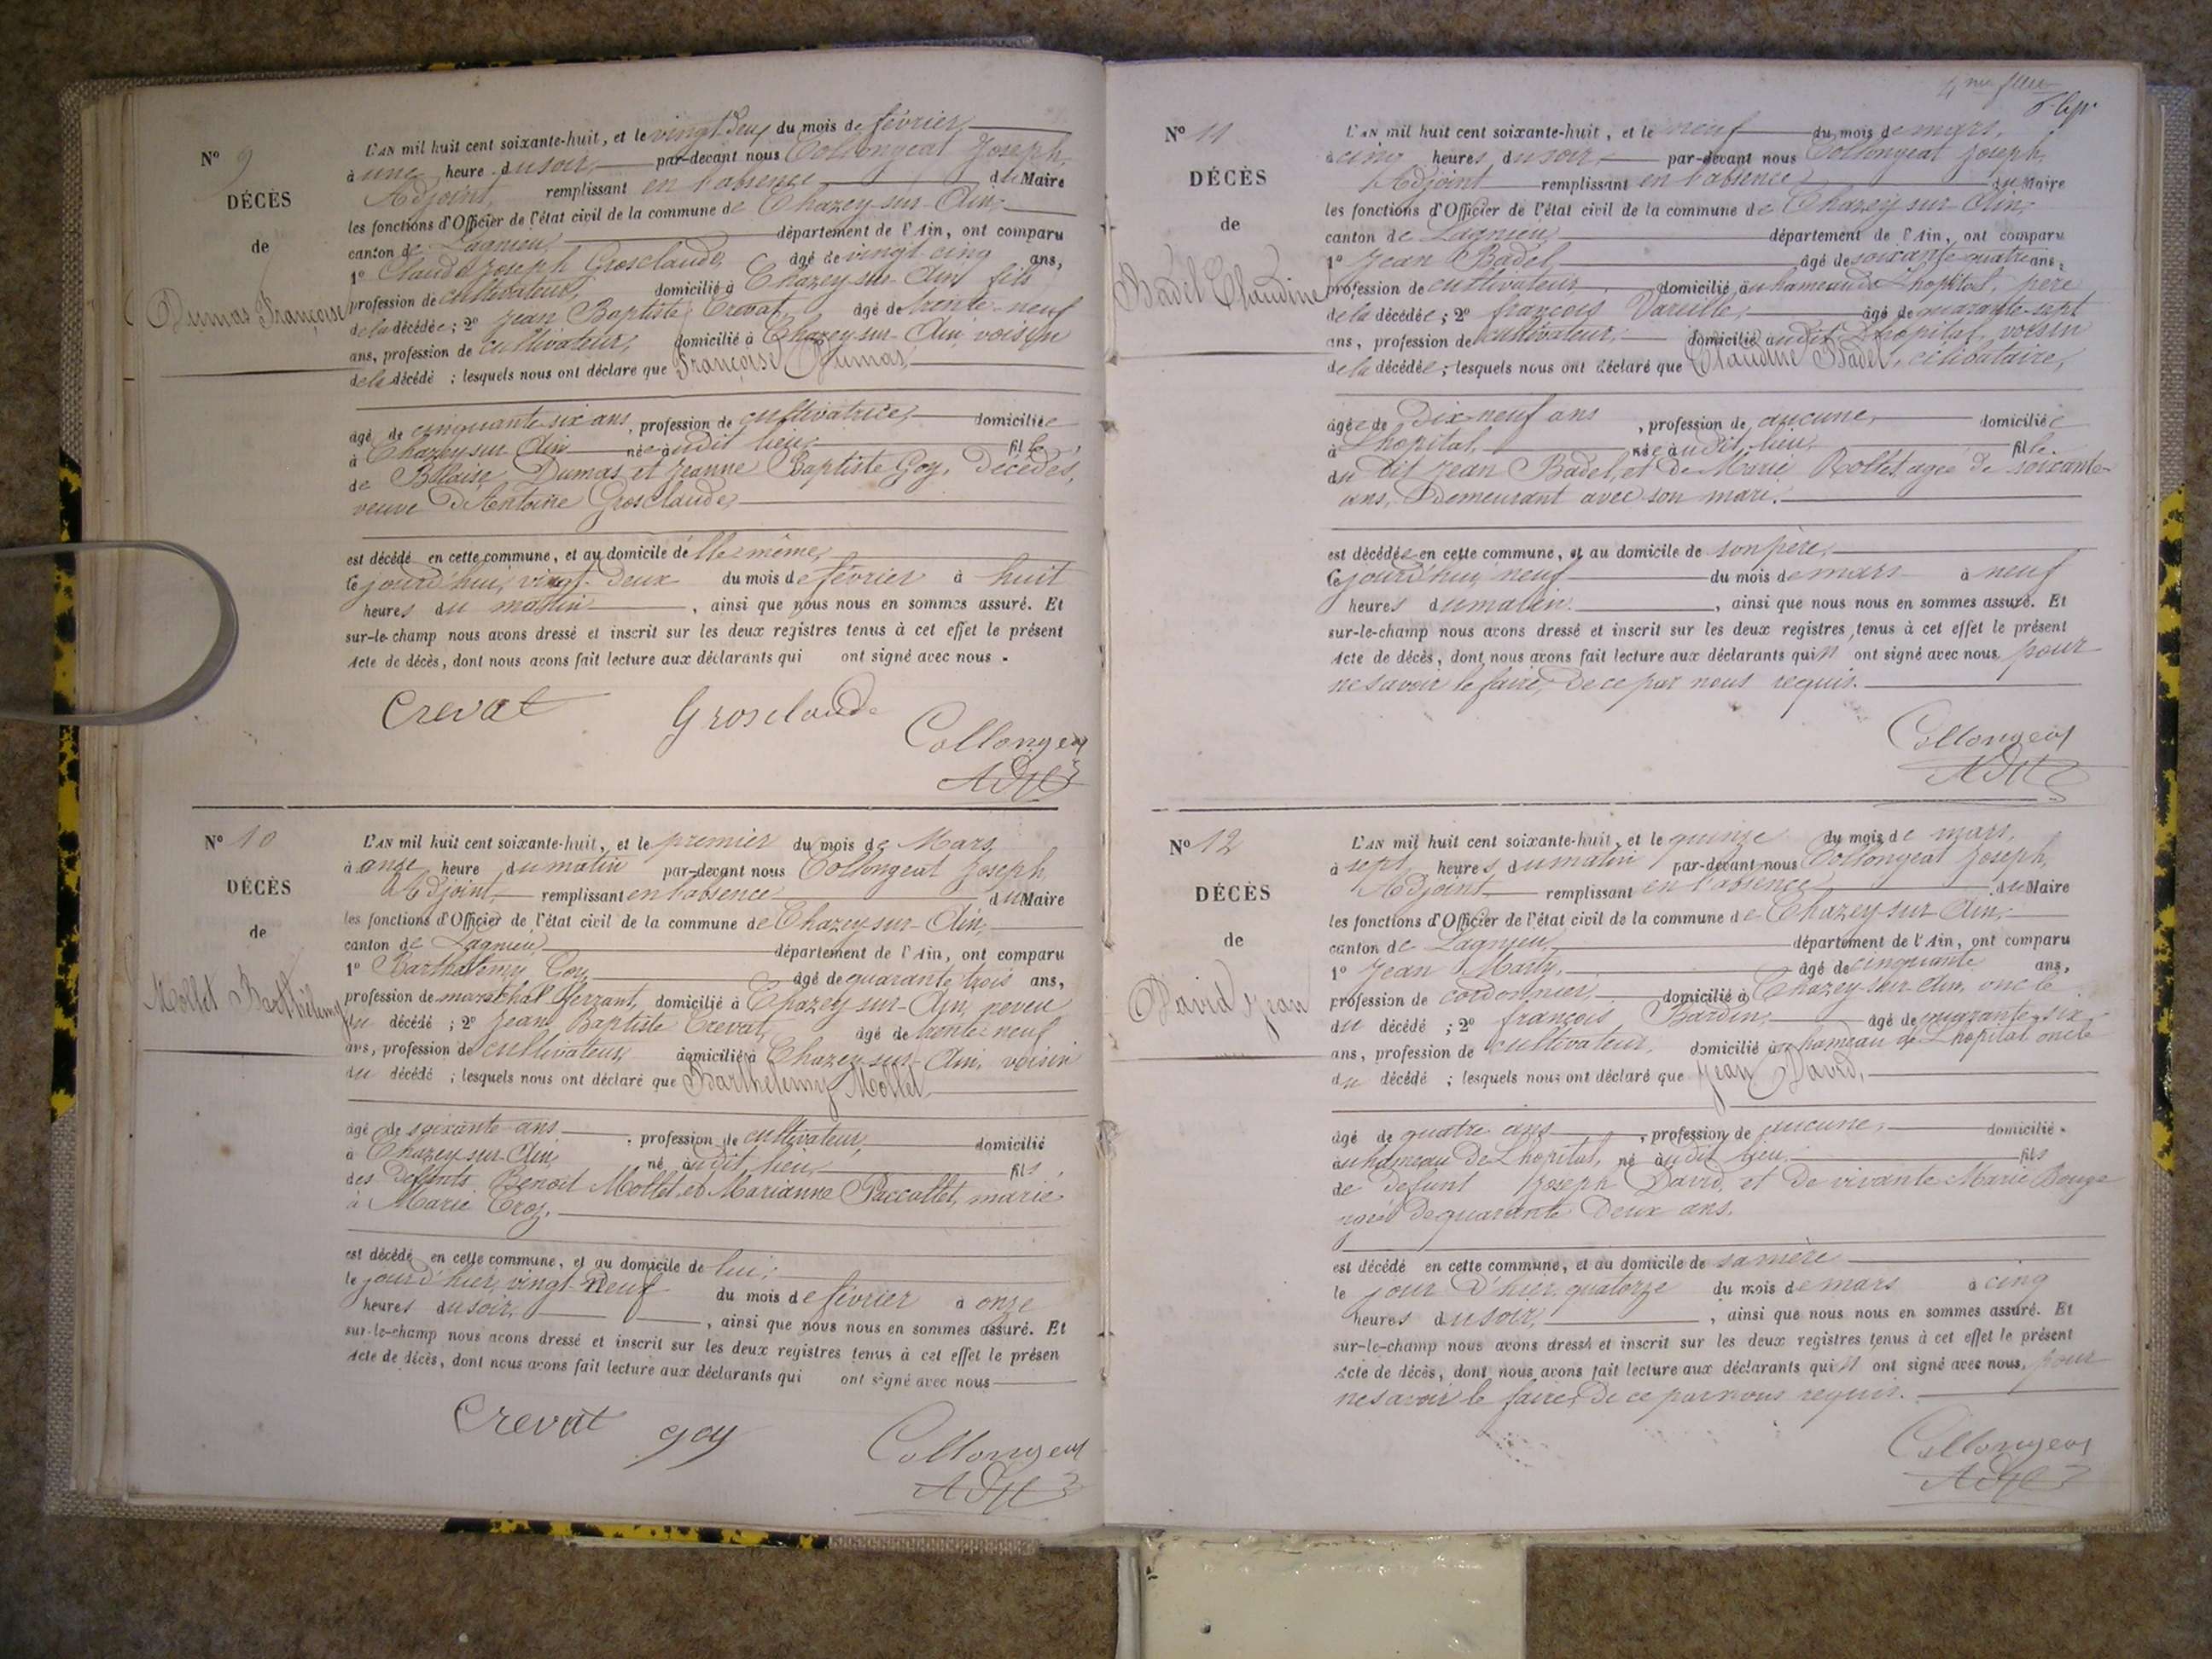 N° 9
DÉCÈS
de
Dumas Françoise
L'AN mil huit cent soixante-huit, et le vingt deux du mois de février
à une heure du soir, par-devant nous Collongeat Joseph,
Adjoint, remplissant en l'absence du Maire
les fonctions d'Officier de l'état civil de la commune de Chazey-sur-Ain,
canton de Lagnieu, département de l'Ain, ont comparu
1° Claude Joseph Grosclaude, âgé de vingt cinq ans,
profession de cultivateur, domicilié à Chazey-sur-Ain, fils
de la décédée ; 2° Jean Baptiste Crevat, âgé de trente-neuf
ans, profession de cultivateur, domicilié à Chazey-sur-Ain, voisin
de la décédé ; lesquels nous ont déclaré que Françoise Dumas,
âgé de cinquante six ans, profession de cultivatrice, domiciliée
à Chazey-sur-Ain née audit lieu, fille
de Blaise Dumas et Jeanne Baptiste Goy, Décédés,
veuve D'Antoine Grosclaude,
est décédé en cette commune, et au domicile de elle-même,
Ce jourd'hui, vingt-deux du mois de février à huit
heures du matin, ainsi que nous nous en sommes assuré. Et
sur-le-champ nous avons dressé et inscrit sur les deux registres tenus à cet effet le présent
Acte de décès, dont nous avons fait lecture aux déclarants qui ont signé avec nous.
Crevat Grosclaude
Collongeat
Adjt
N° 10
DÉCÈS
de
Mollet Barthélemy
L'AN mil huit cent soixante-huit, et le premier du mois de Mars,
à onze heure du matin par-devant nous Collongeat Joseph,
Adjoint, remplissant en l'absence du Maire
les fonctions d'Officier de l'état civil de la commune de Chazey-sur-Ain,
canton de Lagnieu, département de l'Ain, ont comparu
1° Barthelemy Goy, âgé de quarante trois ans,
profession de maréchal ferrant, domicilié à Chazey-sur-Ain, neveu
du décédé ; 2° Jean Baptiste Crevat, âgé de trente-neuf
ans, profession de cultivateur, domicilié à Chazey-sur-Ain, voisin
du décédé ; lesquels nous ont déclaré que Barthélemy Mollet,
âgé de soixante ans, profession de cultivateur, domicilié
à Chazey-sur-Ain, né audit lieu, fils,
des Deffunts Benoit Mollet et Marianne Paccallet, marié
à Marie Croz,
est décédé en cette commune, et au domicile de lui,
le jour d'hier, vingt-neuf du mois de février à onze
heures du soir, ainsi que nous nous en sommes assuré. Et
sur-le-champ nous avons dressé et inscrit sur les deux registres tenus à cet effet le présen
Acte de décès, dont nous avons fait lecture aux déclarants qui ont signé avec nous
Crevat goy
Collongeat
Adjt
4me
N° 11
DÉCÈS
de
Badel Claudine
L'AN mil huit cent soixante-huit, et le neuf du mois de mars,
à cinq heures du soir, par-devant nous Collongeat Joseph,
Adjoint remplissant en l'absence du Maire
les fonctions d'Officier de l'état civil de la commune de Chazey-sur-Ain,
canton de Lagnieu, département de l'Ain, ont comparu
1° Jean Badel, âgé de soixante-quatre ans,
profession de cultivateur, domicilié au hameau de Lhopital, père
de la décédée ; 2° françois Vareille, âgé de quarante-sept
ans, profession de cultivateur, domicilié audit Lhopital, voisin
de la décédée ; lesquels nous ont déclaré que Claudine Badel, célibataire,
âgée de Dix neuf ans, profession de aucune, domiciliée
à Lhopital, née audit lieu, fille
du dit Jean Badel, et de Marie Rollet agée de soixante
ans, Demeurant avec son mari.
est décédée en cette commune, et au domicile de son père,
Ce jourd'hui neuf du mois de mars à neuf
heures du matin, ainsi que nous nous en sommes assuré. Et
sur-le-champ nous avons dressé et inscrit sur les deux registres tenus à cet effet le présent
Acte de décès, dont nous avons fait lecture aux déclarants qui n' ont signé avec nous, pour
ne savoir le faire, De ce par nous requis.
Collongeat
Adjt
N° 12
DÉCÈS
de
David Jean
L'AN mil huit cent soixante-huit, et le quinze du mois de mars,
à sept heures du matin par-devant nous Collongeat Joseph,
Adjoint remplissant en l'absence du Maire
les fonctions d'Officier de l'état civil de la commune de Chazey-sur Ain,
canton de Lagnieu, département de l'Ain, ont comparu
1° Jean Marty, âgé de cinquante ans,
profession de cordonnier, domicilié à Chazey-sur-Ain, oncle
du décédé ; 2° françois Bardin, âgé de quarante-six
ans, profession de cultivateur, domicilié au hameau de Lhopital oncle
du décédé ; lesquels nous ont déclaré que Jean David,
âgé de quatre ans, profession de aucune, domicilié
au hameau de Lhopital, né audit lieu, fils
de défunt Joseph David, et De vivante Marie Bouge
agée De quarante Deux ans.
est décédé en cette commune, et au domicile de sa mère
le jour D'hier quatorze du mois de mars à cinq
heures du soir, ainsi que nous nous en sommes assuré. Et
sur-le-champ nous avons dressé et inscrit sur les deux registres tenus à cet effet le présent
Acte de décès, dont nous avons fait lecture aux déclarants qui n' ont signé avec nous, pour
ne savoir le faire, De ce par nous requis.
Collongeat
Adjt